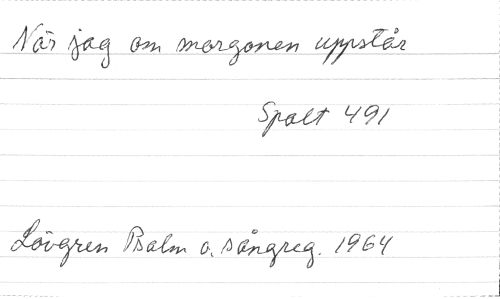 När jag om morgonen uppstår
Spalt 491
Lövgren Psalm o. sångreg. 1964